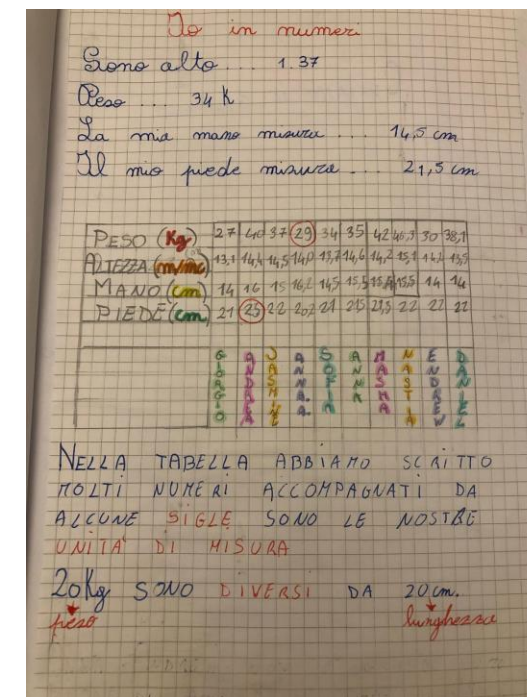 Io in numeri
Sono alto... 1.37
Peso... 34 K
La mia mano misura... 14,5 cm
Il mio piede misura... 21,5 cm
PESO (Kg) 27 40 37 29 34 35 42 46,3 30 38,1
ALTEZZA (m/mc) 13,1 14,4 14,5 14,0 15,7 14,6 14,2 15,1 14,4 13,5
MANO (cm) 14 16 15 16,2 14,5 15,5 15,5 14 14
PIEDE (cm) 21 25 22 20,2 21 21,5 21,5 22 22 22
GIORGIO ANDREA JASMINE ANNA.A. SOFIA ANNA MASMA NASTIA ENDREW DANIEL
NELLA TABELLA ABBIAMO SCRITTO
MOLTI NUMERI ACCOMPAGNATI DA
ALCUNE SIGLE SONO LE NOSTRE
UNITÀ DI MISURA
20Kg SONO DIVERSI DA 20 cm.
peso lunghezza